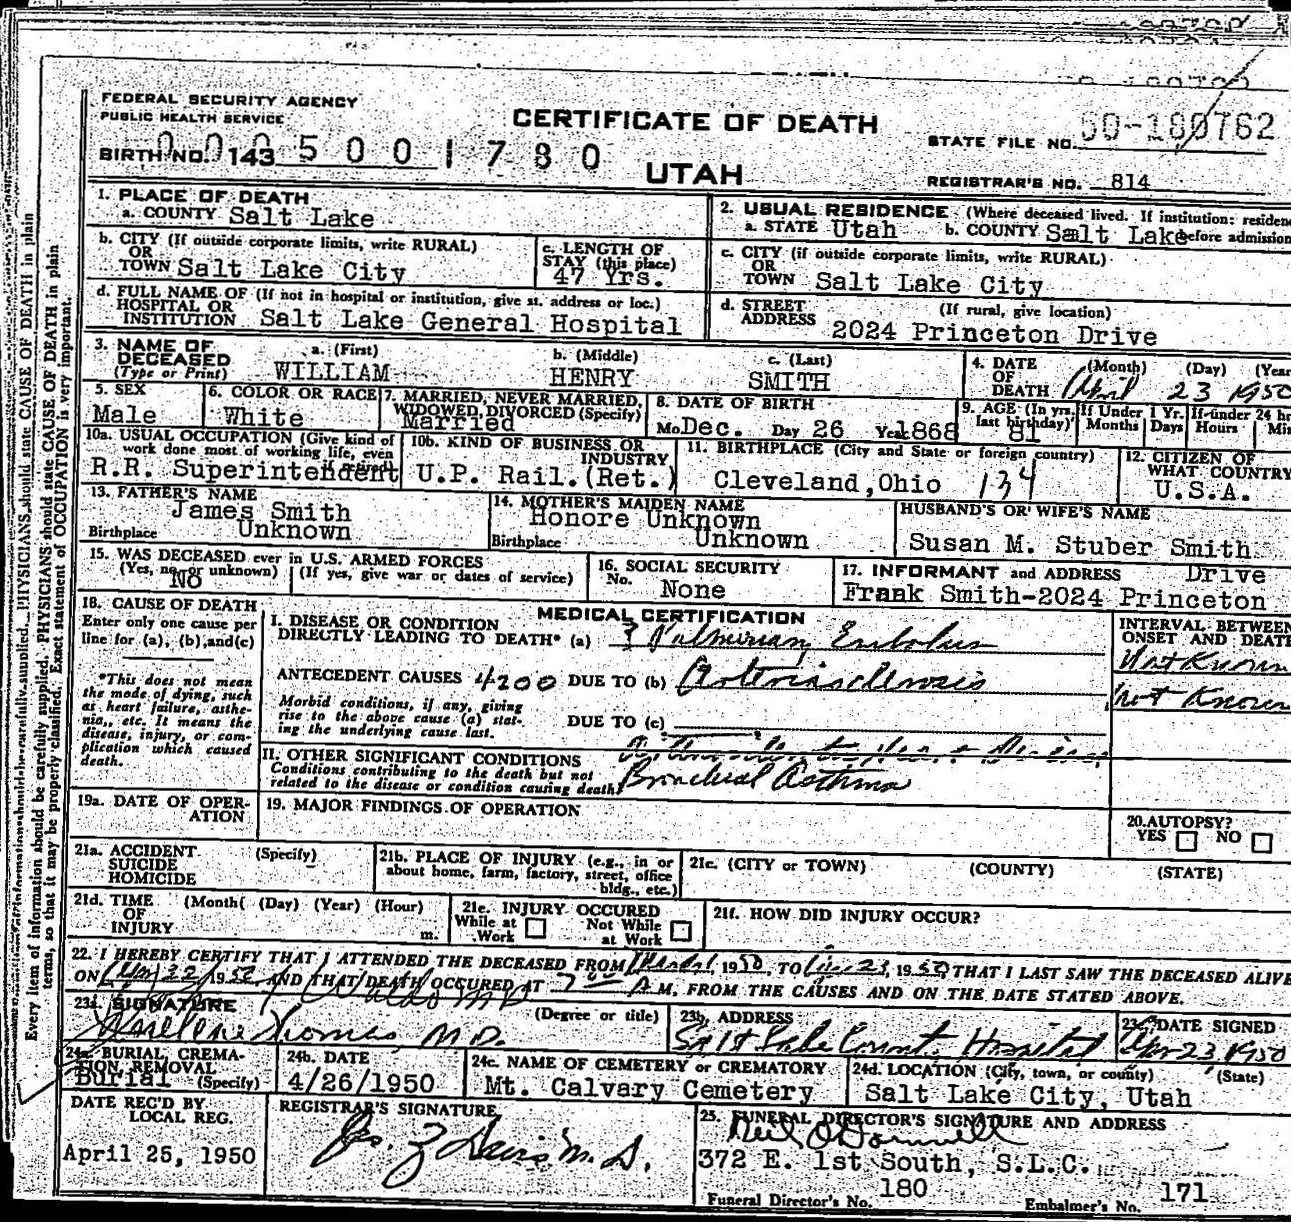 FEDERAL SECURITY AGENCY
PUBLIC HEALTH SERVICE
CERTIFICATE OF DEATH
STATE FILE NO. 50-180762
BIRTH NO. 143
0005001780
UTAH
REGISTRAR'S NO. 814
1. PLACE OF DEATH
a. COUNTY Salt Lake
2. USUAL RESIDENCE (Where deceased lived. If institution: residen
a. STATE Utah b. COUNTY Salt Lake before admission
b. CITY (If outside corporate limits, write RURAL)
OR
TOWN Salt Lake City
c. LENGTH OF
STAY (this place)
47 Yrs.
c. CITY (if outside corporate limits, write RURAL)
OR
TOWN Salt Lake City
d. FULL NAME OF (If not in hospital or institution, give st. address or loc.)
HOSPITAL OR
INSTITUTION Salt Lake General Hospital
d. STREET (If rural, give location)
ADDRESS 2024 Princeton Drive
3. NAME OF
DECEASED
(Type or Print)
a. (First) b. (Middle) c. (Last)
WILLIAM HENRY SMITH
4. DATE (Month) (Day) (Yea
OF
DEATH April 23 1950
5. SEX
Male
6. COLOR OR RACE
White
7. MARRIED, NEVER MARRIED,
WIDOWED, DIVORCED (Specify)
Married
8. DATE OF BIRTH
Mo. Dec. Day 26 Yr. 1868
9. AGE (In yrs. last birthday) 81
If Under 1 Yr. Months Days
If under 24 hr Hours Mi
10a. USUAL OCCUPATION (Give kind of
work done most of working life, even
R.R. Superintendent
10b. KIND OF BUSINESS OR
INDUSTRY
U.P. Rail.(Ret.)
11. BIRTHPLACE (City and State or foreign country)
Cleveland, Ohio 134
12. CITIZEN OF
WHAT COUNTRY
U.S.A.
13. FATHER'S NAME
James Smith
Birthplace Unknown
14. MOTHER'S MAIDEN NAME
Honore Unknown
Birthplace Unknown
HUSBAND'S OR WIFE'S NAME
Susan M. Stuber Smith
15. WAS DECEASED ever in U.S. ARMED FORCES
(Yes, no or unknown) (If yes, give war or dates of service)
No
16. SOCIAL SECURITY
No. None
17. INFORMANT and ADDRESS Drive
Frank Smith-2024 Princeton
18. CAUSE OF DEATH
Enter only one cause per
line for (a), (b), and (c)
*This does not mean
the mode of dying, such
as heart failure, asthe-
nia, etc. It means the
disease, injury, or com-
plication which caused
death.
MEDICAL CERTIFICATION
I. DISEASE OR CONDITION
DIRECTLY LEADING TO DEATH* (a) ? Pulmonary Embolus
INTERVAL BETWEEN
ONSET AND DEATH
Not Known
ANTECEDENT CAUSES 4200 DUE TO (b) Arteriosclerosis
Not Known
Morbid conditions, if any, giving
rise to the above cause (a) stat-
ing the underlying cause last.
DUE TO (c)
II. OTHER SIGNIFICANT CONDITIONS
Conditions contributing to the death but not
related to the disease or condition causing death.
Bronchial Asthma
19a. DATE OF OPER-
ATION
19. MAJOR FINDINGS OF OPERATION
20. AUTOPSY?
YES NO
21a. ACCIDENT (Specify)
SUICIDE
HOMICIDE
21b. PLACE OF INJURY (e.g., in or
about home, farm, factory, street, office
bldg., etc.)
21c. (CITY or TOWN) (COUNTY) (STATE)
21d. TIME (Month( (Day) (Year) (Hour)
OF
INJURY m.
21e. INJURY OCCURED
While at Work
Not While at Work
21f. HOW DID INJURY OCCUR?
22. I HEREBY CERTIFY THAT I ATTENDED THE DECEASED FROM 1950, TO 23, 1950 THAT I LAST SAW THE DECEASED ALIVE
ON 22 1950, AND THAT DEATH OCCURED AT 7 A M, FROM THE CAUSES AND ON THE DATE STATED ABOVE.
23a. SIGNATURE (Degree or title)
Thomas, M.D.
23b. ADDRESS
Salt Lake County Hospital
23c. DATE SIGNED
Apr 23 1950
24a. BURIAL, CREMA-
TION, REMOVAL
Burial (Specify)
24b. DATE
4/26/1950
24c. NAME OF CEMETERY or CREMATORY
Mt. Calvary Cemetery
24d. LOCATION (City, town, or county) (State)
Salt Lake City, Utah
DATE REC'D BY
LOCAL REG.
April 25, 1950
REGISTRAR'S SIGNATURE
25. FUNERAL DIRECTOR'S SIGNATURE AND ADDRESS
Neil O'Donnell
372 E. 1st South, S.L.C.
Funeral Director's No. 180 Embalmer's No. 171
Every item of information should be carefully supplied. PHYSICIANS should state CAUSE OF DEATH in plain
terms, so that it may be properly classified. Exact statement of OCCUPATION is very important.